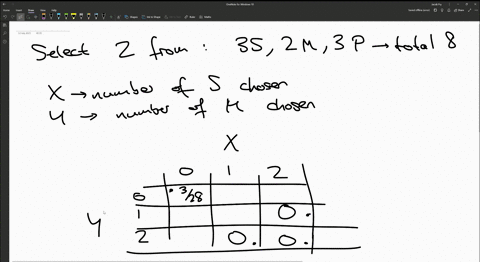 Select 2 from : 3S, 2M, 3P → total 8
X → number of S chosen
Y → number of M chosen
X
0 1 2
0 3/28
1 0
Y
2 0 0